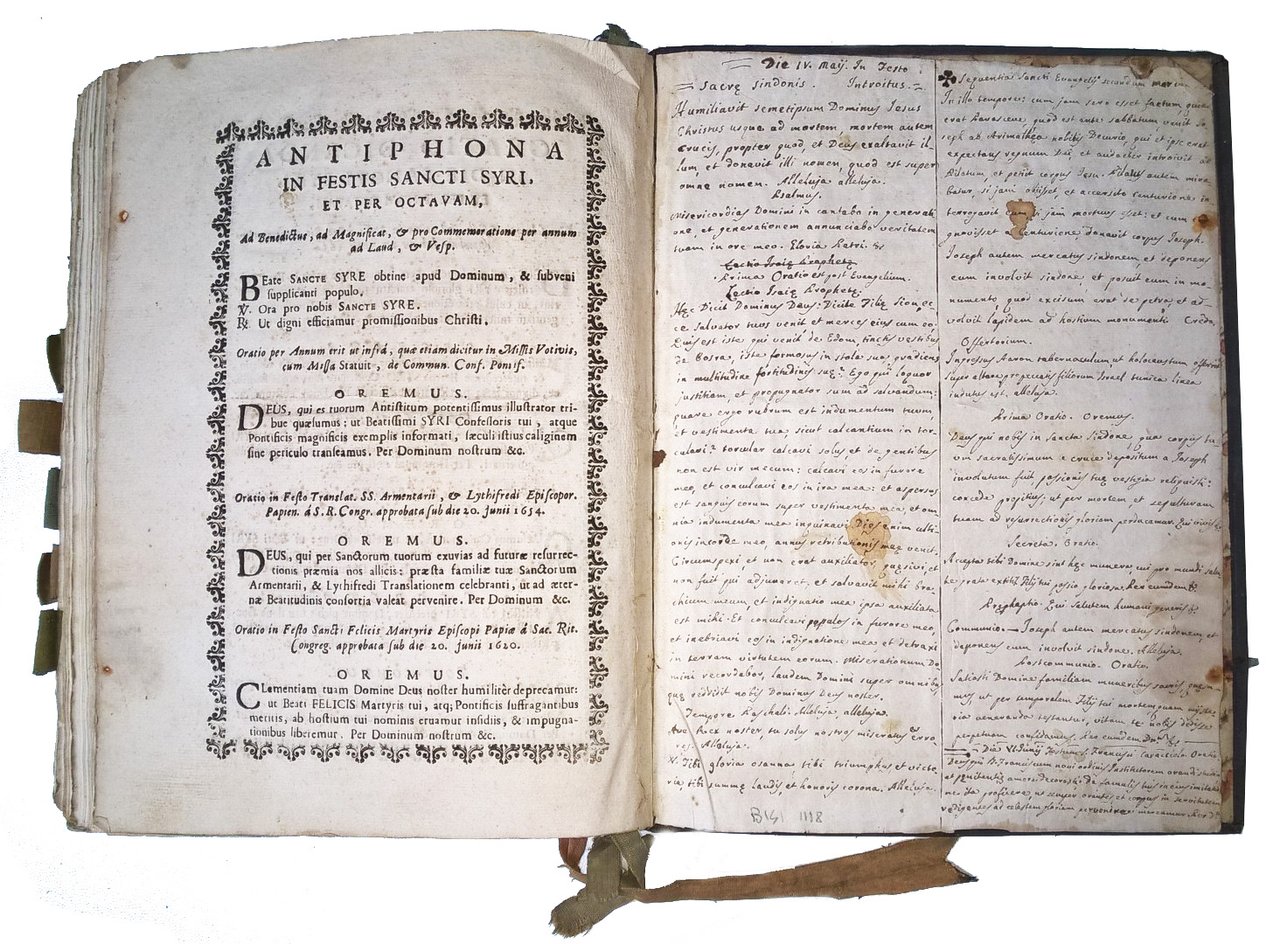 ANTIPHONA
IN FESTIS SANCTI SYRI,
ET PER OCTAVAM,
Ad Benedictus, ad Magnificat, & pro Commemoratione per annum
ad Laud, & Vesp.
BEate SANCTE SYRE obtine apud Dominum, & subveni
supplicanti populo.
℣. Ora pro nobis SANCTE SYRE.
℟. Ut digni efficiamur promissionibus Christi.
Oratio per Annum erit ut infrá, quæ etiam dicitur in Missis Votivis,
cum Missa Statuit, de Commun. Conf. Pontif.
OREMUS.
DEUS, qui es tuorum Antistitum potentissimus illustrator tri-
bue quæsumus: ut Beatissimi SYRI Confessoris tui, atque
Pontificis magnificis exemplis informati, sæculi istius caliginem
sine periculo transeamus. Per Dominum nostrum &c.
Oratio in Festo Translat. SS. Armentarii, & Lythifredi Episcopor.
Papien. á S.R. Congr. approbata sub die 20. Junii 1654.
OREMUS.
DEUS, qui per Sanctorum tuorum exuvias ad futuræ resurrec-
tionis præmia nos allicis: præsta familiæ tuæ Sanctorum
Armentarii, & Lythifredi Translationem celebranti, ut ad æter-
næ Beatitudinis consortia valeat pervenire. Per Dominum &c.
Oratio in Festo Sancti Felicis Martyris Episcopi Papiæ á Sac. Rit.
Congreg. approbata sub die 20. Junii 1620.
OREMUS.
CLementiam tuam Domine Deus noster humilitèr deprecamur:
ut Beati FELICIS Martyris tui, atq; Pontificis suffragantibus
meritis, ab hostium tui nominis eruamur insidiis, & impugna-
tionibus liberemur. Per Dominum nostrum &c.
Die IV. Maij. In Festo
Sacrę Sindonis. Introitus.
Humiliavit semetipsum Dominus Jesus
Christus usque ad mortem, mortem autem
crucis, propter quod, et Deus exaltavit il-
lum et donavit illi nomen, quod est super
omne nomen. Alleluja alleluja.
Psalmus.
Misericordias Domini in
one, et generationem annunciabo veritatem
tuam in ore meo. Gloria Patri. &c
Lectio Isaię Prophetę
Prima Oratio est post Evangelium.
Lectio Isaię Prophetę.
Hęc Dicit Dominus Deus: Dicite filię Sion, ec-
ce salvator tuus venit et merces eius cum eo.
Quis est iste qui venit de Edom, tinctis vestibus
de Bosra, iste formosus in stola sua, gradiens
in multitudine fortitudinis suę. Ego qui loquor
justitiam, et propugnator sum ad salvandum:
quare ergo rubrum est indumentum tuum,
et vestimenta tua sicut calcantium in tor-
culari? torcular calcavi solus et de gentibus
non est vir mecum: calcavi eos in furore
meo, et conculcavi eos in ira mea: et aspersus
est sanguis eorum super vestimenta mea, et om-
nia indumenta mea inquinavi. Dies enim ulti-
onis in corde meo, annus retributionis meę venit.
Circumspexi et non erat auxiliator, quęsivi, et
non fuit qui adjuvaret, et salvavit mihi bra-
chium meum, et indignatio mea ipsa auxiliata
est mihi. Et conculcavi populos in furore meo,
et inebriavi eos in indignatione mea et detraxi
in terram virtutem eorum. Miserationum Do-
mini recordabor, laudem Domini super omnibus,
quę reddidit nobis Dominus Deus noster.
Tempore Paschali Alleluja, alleluja.
Ave Rex noster, tu solus nostros miseratus erro-
res Alleluja.
℣. Tibi gloria osanna tibi triumphus, et victo-
ria, tibi summę laudis, et honoris corona. Alleluja.
1118
Sequentia Sancti Evangelij secundum
In illo tempore: cum jam sero esset factum quia
erat Parasceve, quod est ante sabbatum venit Jo-
seph ab Arimathęa nobilis Decurio, qui et ipse erat
expectans regnum Dei, et audacter introivit ad
Pilatum, et petiit corpus Jesu. Pilatus autem mira-
batur, si jam obiisset, et accersito Centurione, in-
terrogavit eum si jam mortuus est: et cum
cognovisset a Centurione, donavit corpus Joseph.
Joseph autem mercatus sindonem, et deponens
eum involvit sindone, et posuit eum in mo-
numento quod excisum erat de petra, et ad-
volvit lapidem ad hostium monumenti. Credo.
Offertorium.
Ingressus Aaron tabernaculum, ut holocaustum offerret
super altare pro peccatis filiorum Israel tunica linea
indutus est. alleluja.
Prima Oratio. Oremus.
Deus qui nobis in Sancta Sindone, qua corpus tu-
um sacratissimum e cruce depositum a Joseph
involutum fuit passionis tuę vestigia reliquisti:
concede propitius: ut per mortem et sepulturam
tuam ad resurrectionis gloriam perducamur. Qui vivis &c
Secreta. Oratio.
Accepta tibi Domine sint hęc munera
Filij tui passio gloriosa. Per eundem &.
Pręphatio. Qui salutem humani generis &c
Communio. Joseph autem mercatus sindonem, et
deponens eum involvit sindone. Alleluja
Postcommunio. Oratio.
Satiasti Domine familiam tuam muneribus sacris
ut per temporalem Filij tui mortem quam myste-
ria veneranda testantur, vitam te nobis dedisse
perpetuam confidamus. Per eundem